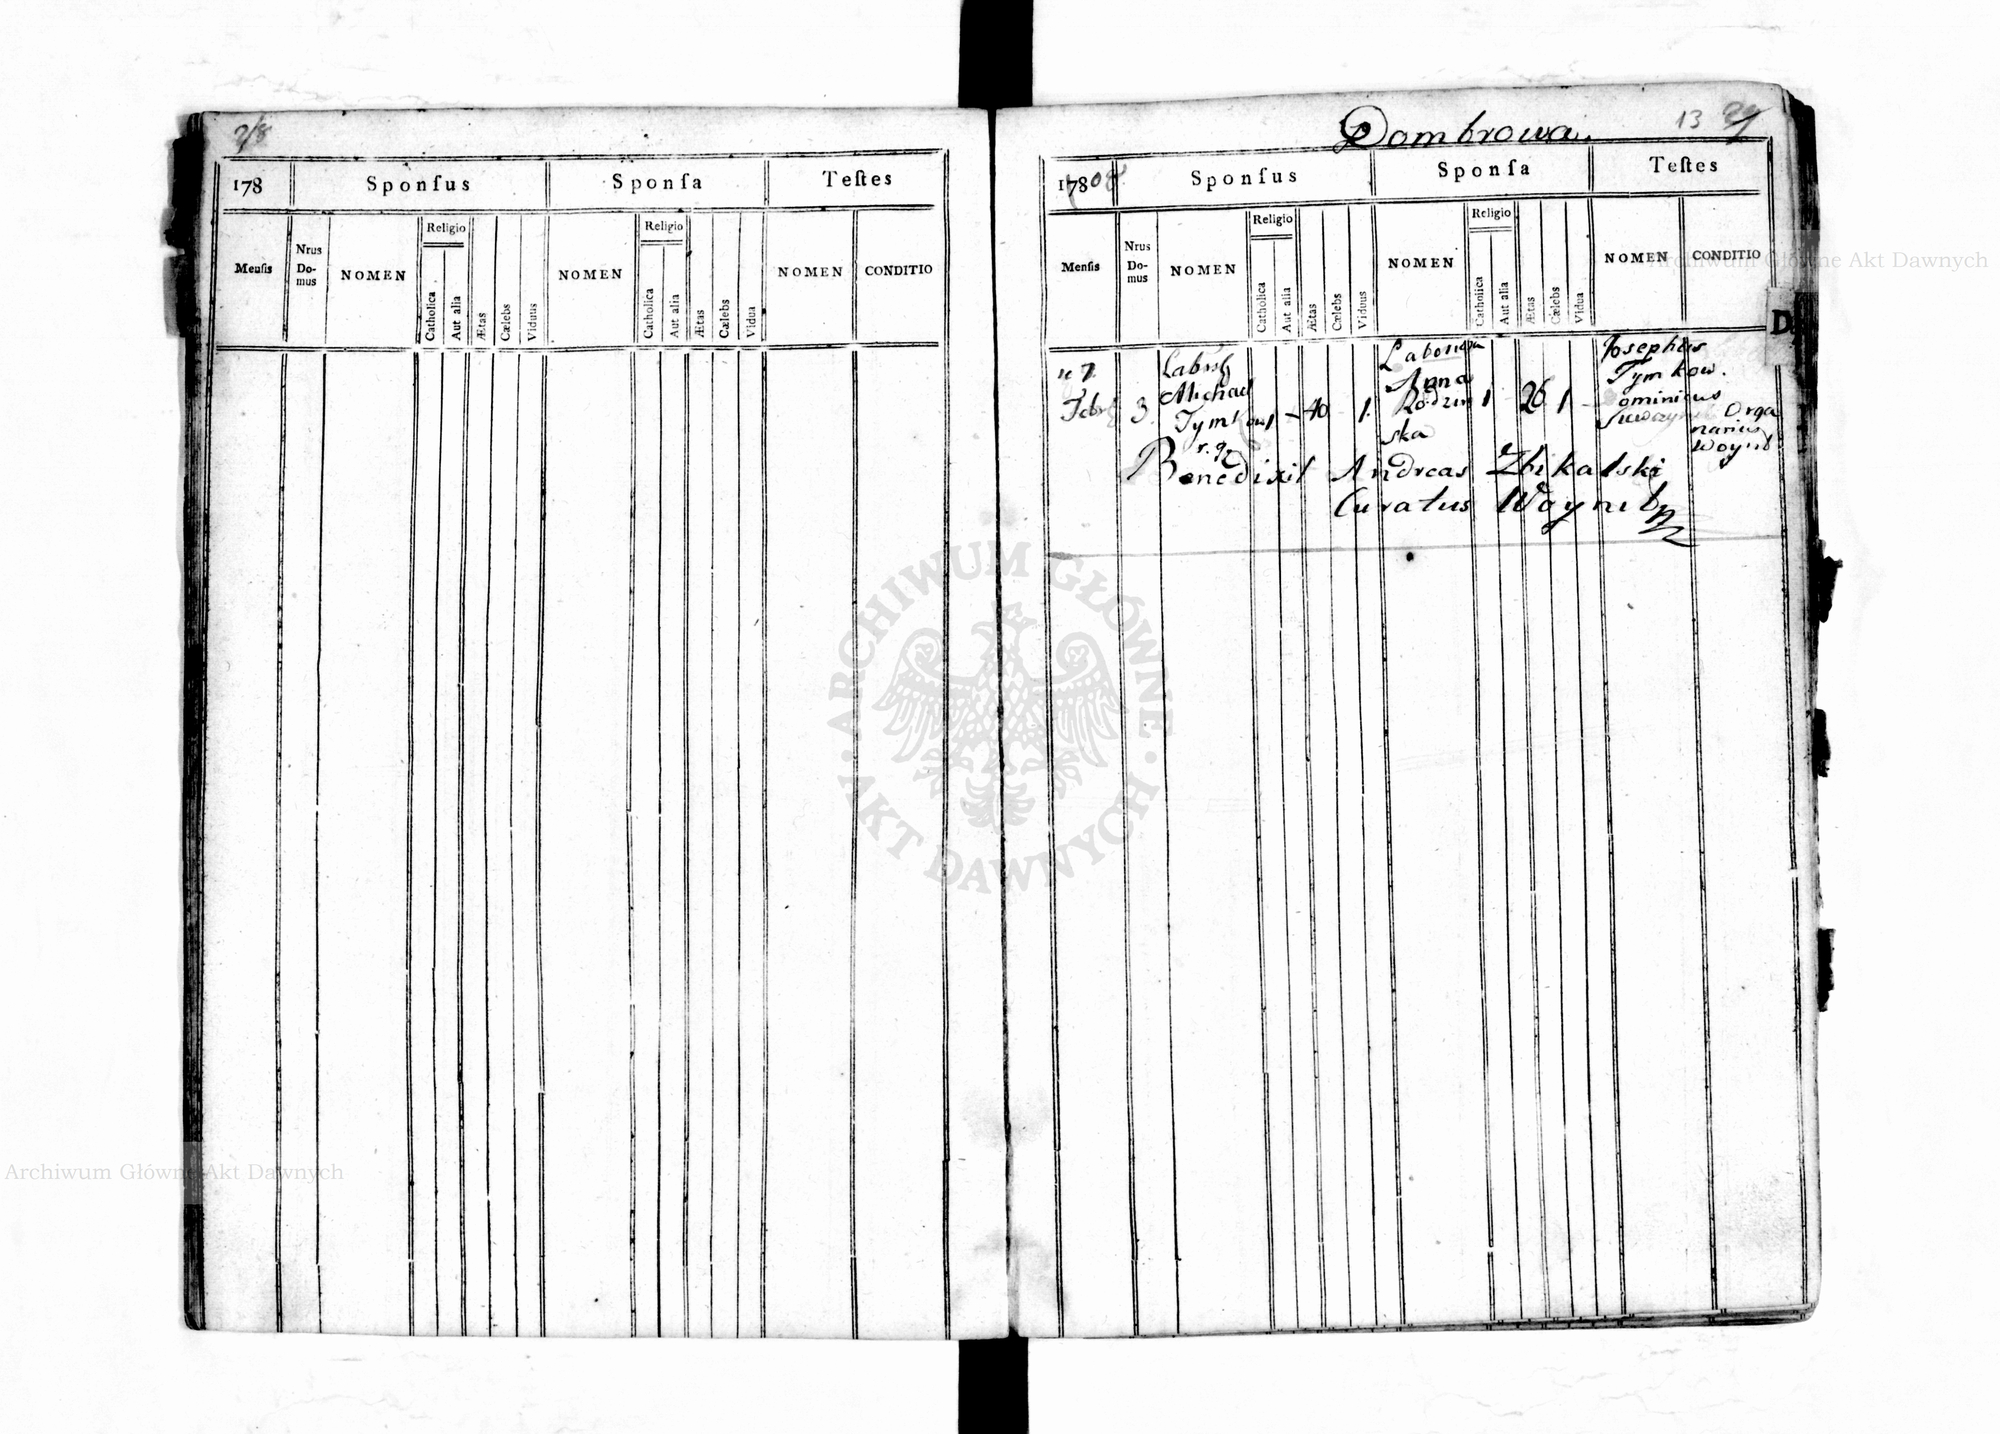 28
178
Sponſus
Sponſa
Teſtes
Menſis
Nrus
Do-
mus
NOMEN
Religio
Catholica
Aut alia
Ætas
Cœlebs
Viduus
NOMEN
Religio
Catholica
Aut alia
Ætas
Cœlebs
Vidua
NOMEN
CONDITIO
Dombrowa.
13
178
Sponſus
Sponſa
Teſtes
Menſis
Nrus
Do-
mus
NOMEN
Religio
Catholica
Aut alia
Ætas
Cœlebs
Viduus
NOMEN
Religio
Catholica
Aut alia
Ætas
Cœlebs
Vidua
NOMEN
CONDITIO
Michael
3.
1
40
1
Anna
Rodzin
ska
1
26
1
Josephus
Tymkow.
Dominicus
Orga
narius
Benedixit Andreas Zbikalski
Curatus
D
ARCHIWUM GŁÓWNE AKT DAWNYCH
Archiwum Główne Akt Dawnych
Archiwum Główne Akt Dawnych